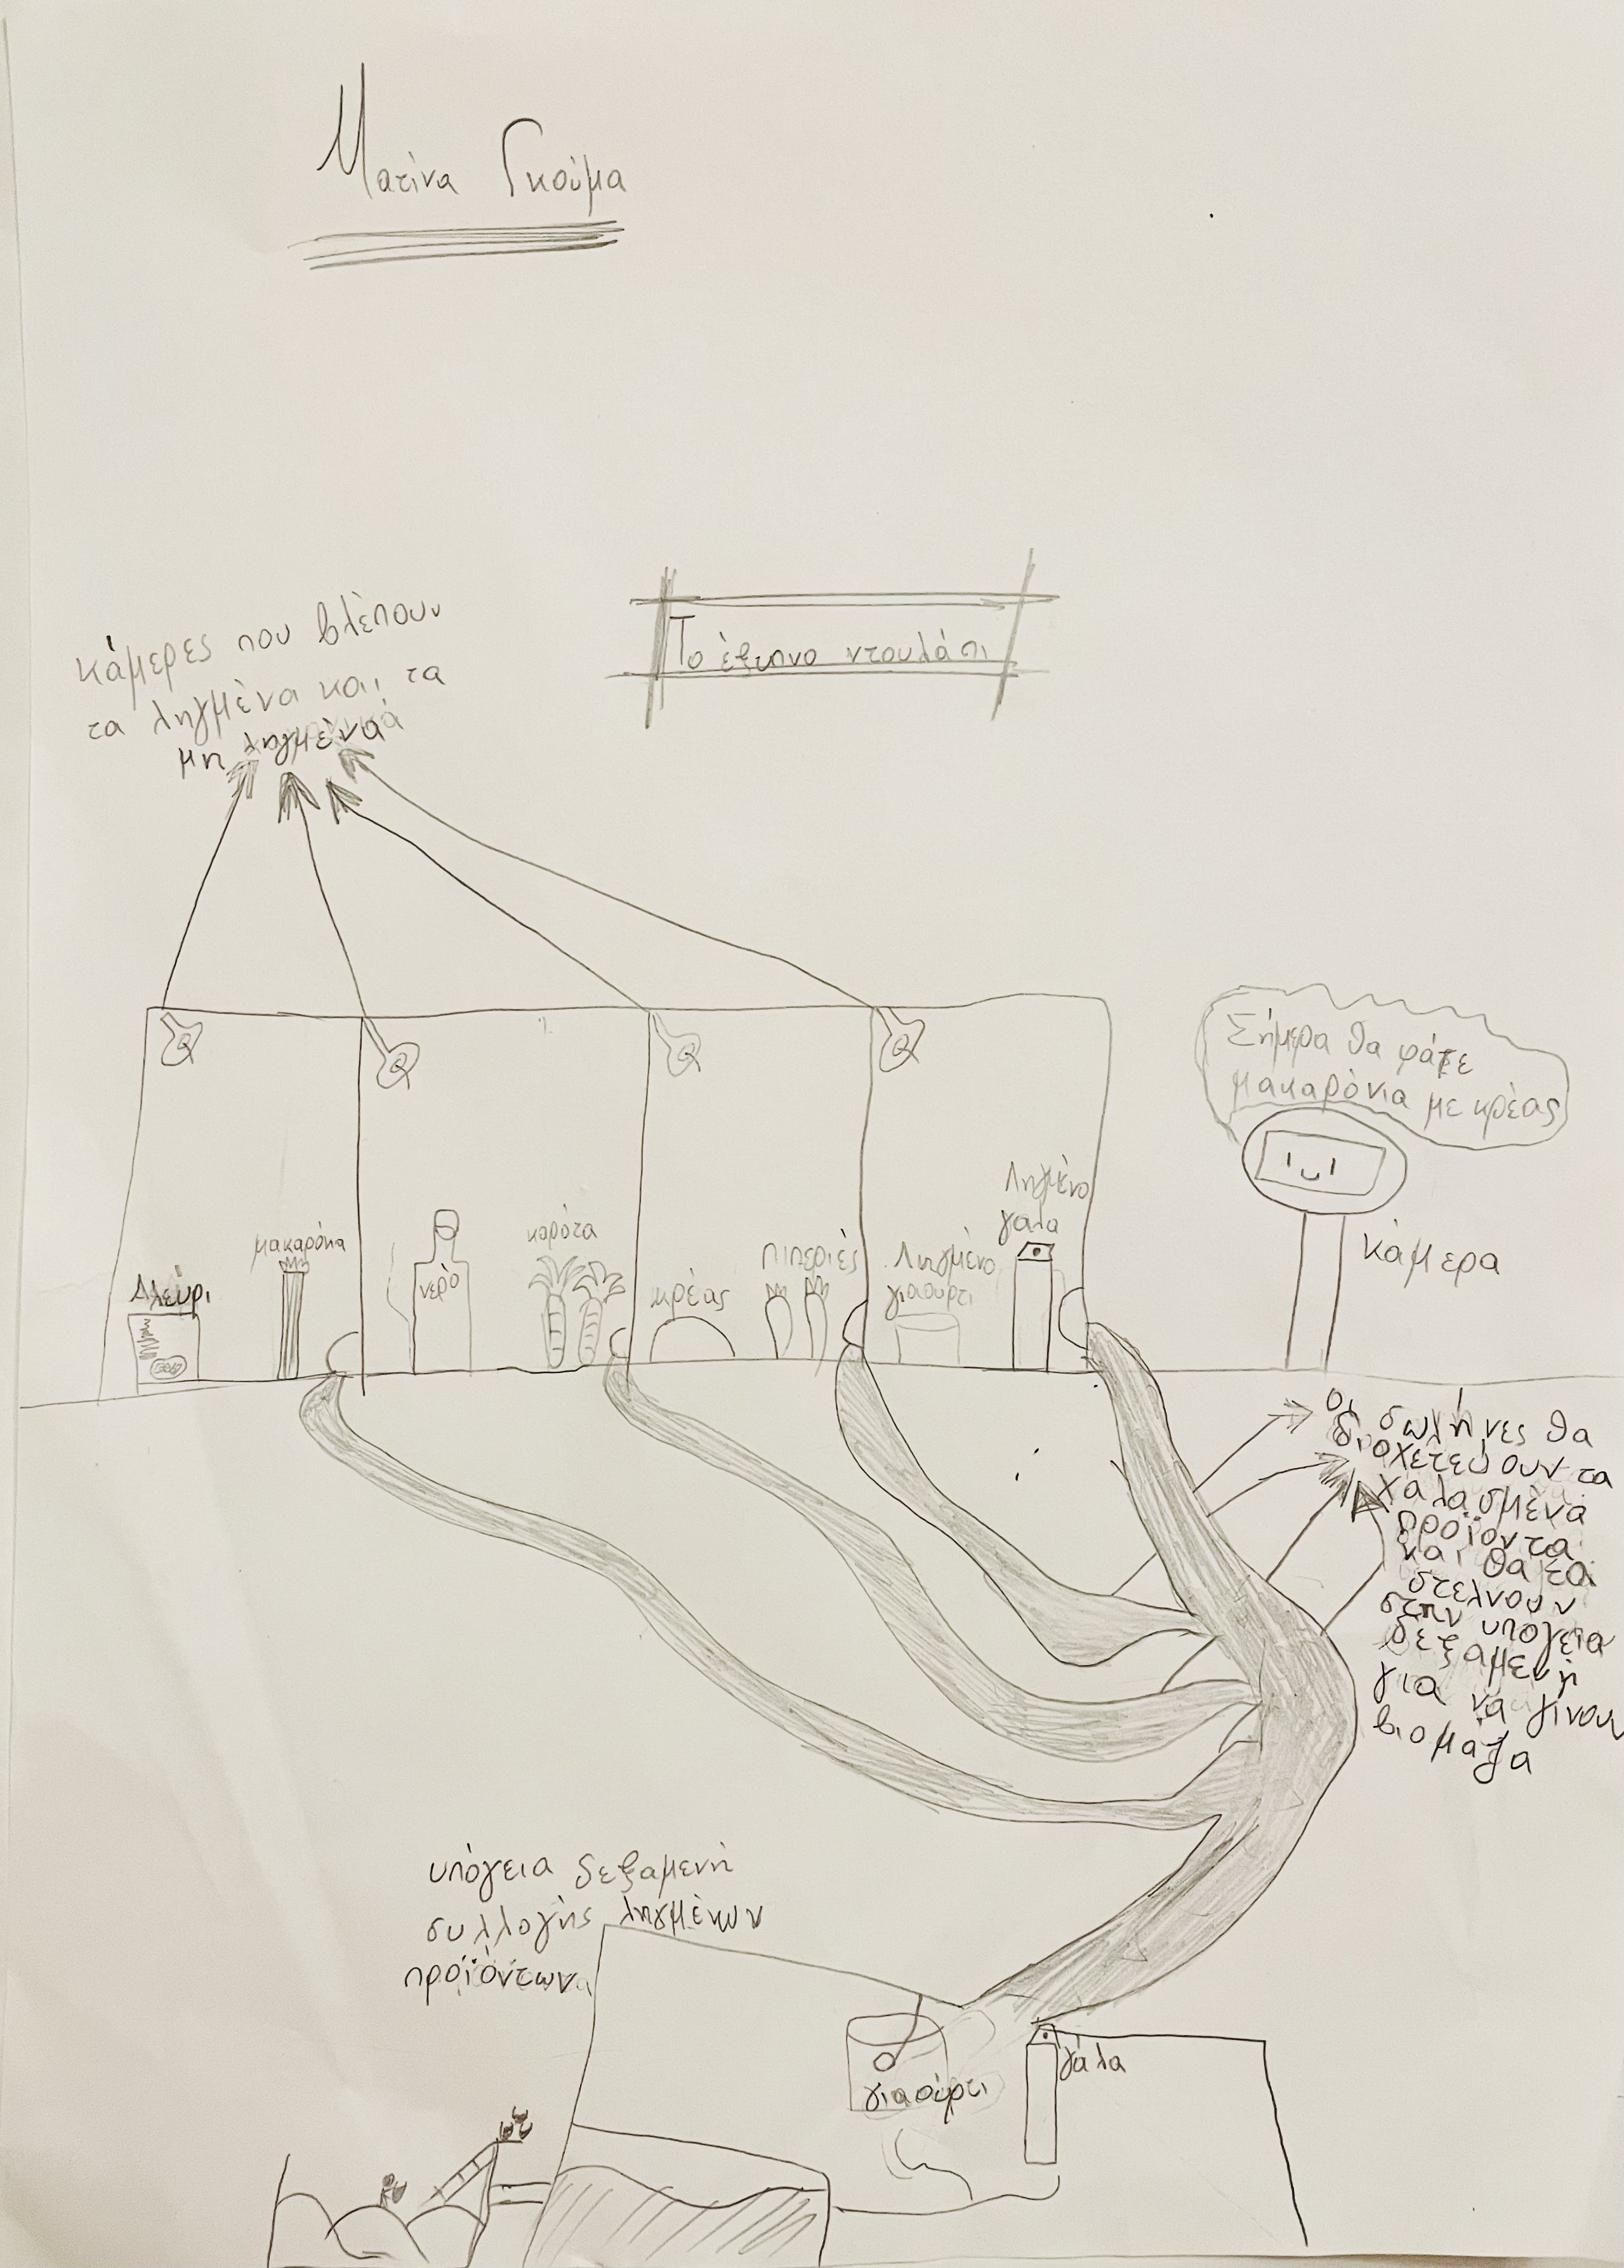 Ματίνα Γκούμα
Το έξυπνο ντουλάπι
κάμερες που βλέπουν
τα ληγμένα και τα
μη ληγμένα
Σήμερα θα φάτε
μακαρόνια με κρέας
κάμερα
Αλεύρι
μακαρόνια
νερό
καρότα
κρέας
πιπεριές
Ληγμένο
γιαούρτι
Ληγμένο
γάλα
Οι σωλήνες θα
διοχετεύουν τα
χαλασμένα
προϊόντα
και θα τα
στελνουν
στην υπογεια
δεξαμενή
για να γίνουν
βιομάζα
υπόγεια δεξαμενή
συλλογής ληγμένων
προϊόντων
γιαούρτι
γάλα